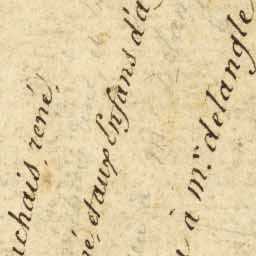 uchais, rené,
né, et aux Enfans d'a
à mr. delangle